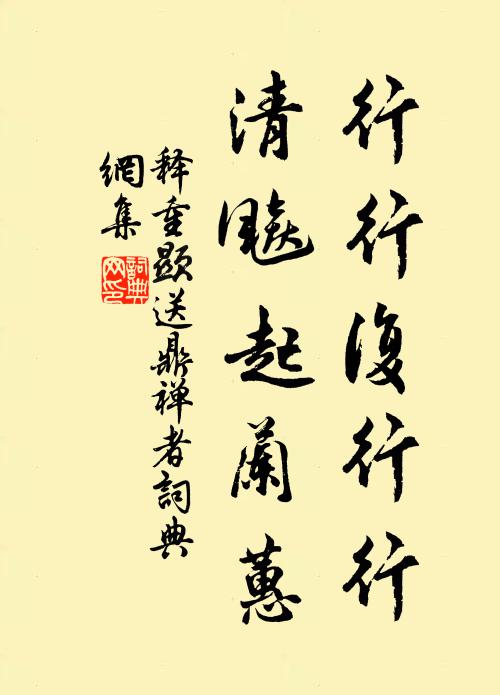 行行復行行
清飈起蘭蕙
释重顯送鼎禅者詞典
網集
詞典
网